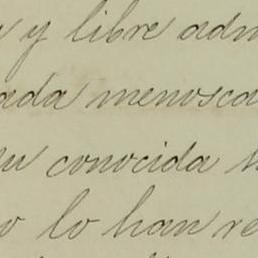 y libre adm
ada menosca
su conocida
lo han re